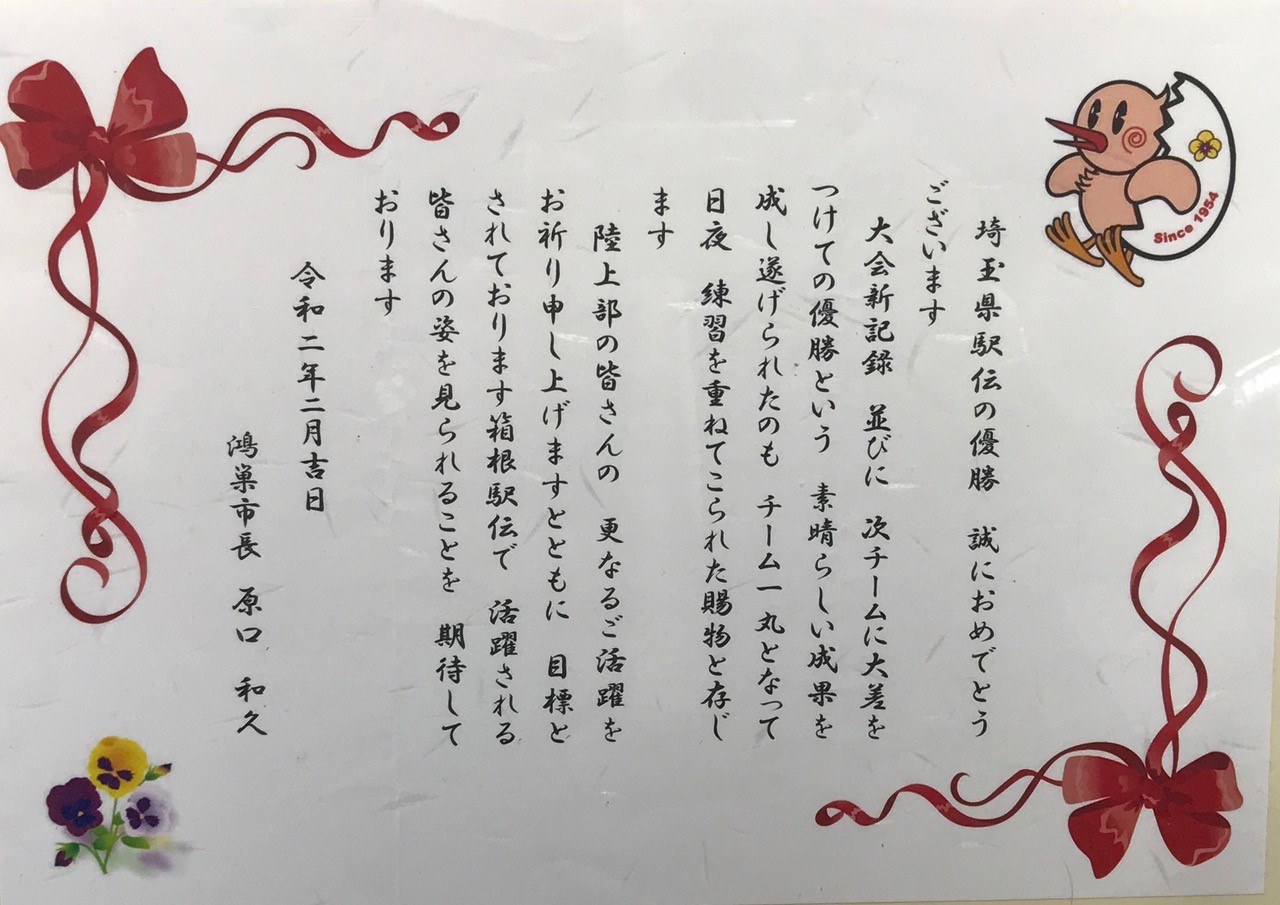 埼玉県駅伝の優勝　誠におめでとう
ございます
大会新記録　並びに　次チームに大差を
つけての優勝という　素晴らしい成果を
成し遂げられたのも　チーム一丸となって
日夜　練習を重ねてこられた賜物と存じ
ます
陸上部の皆さんの　更なるご活躍を
お祈り申し上げますとともに　目標と
されております箱根駅伝で　活躍される
皆さんの姿を見られることを　期待して
おります
令和二年二月吉日
鴻巣市長　原口　和久
Since 1954